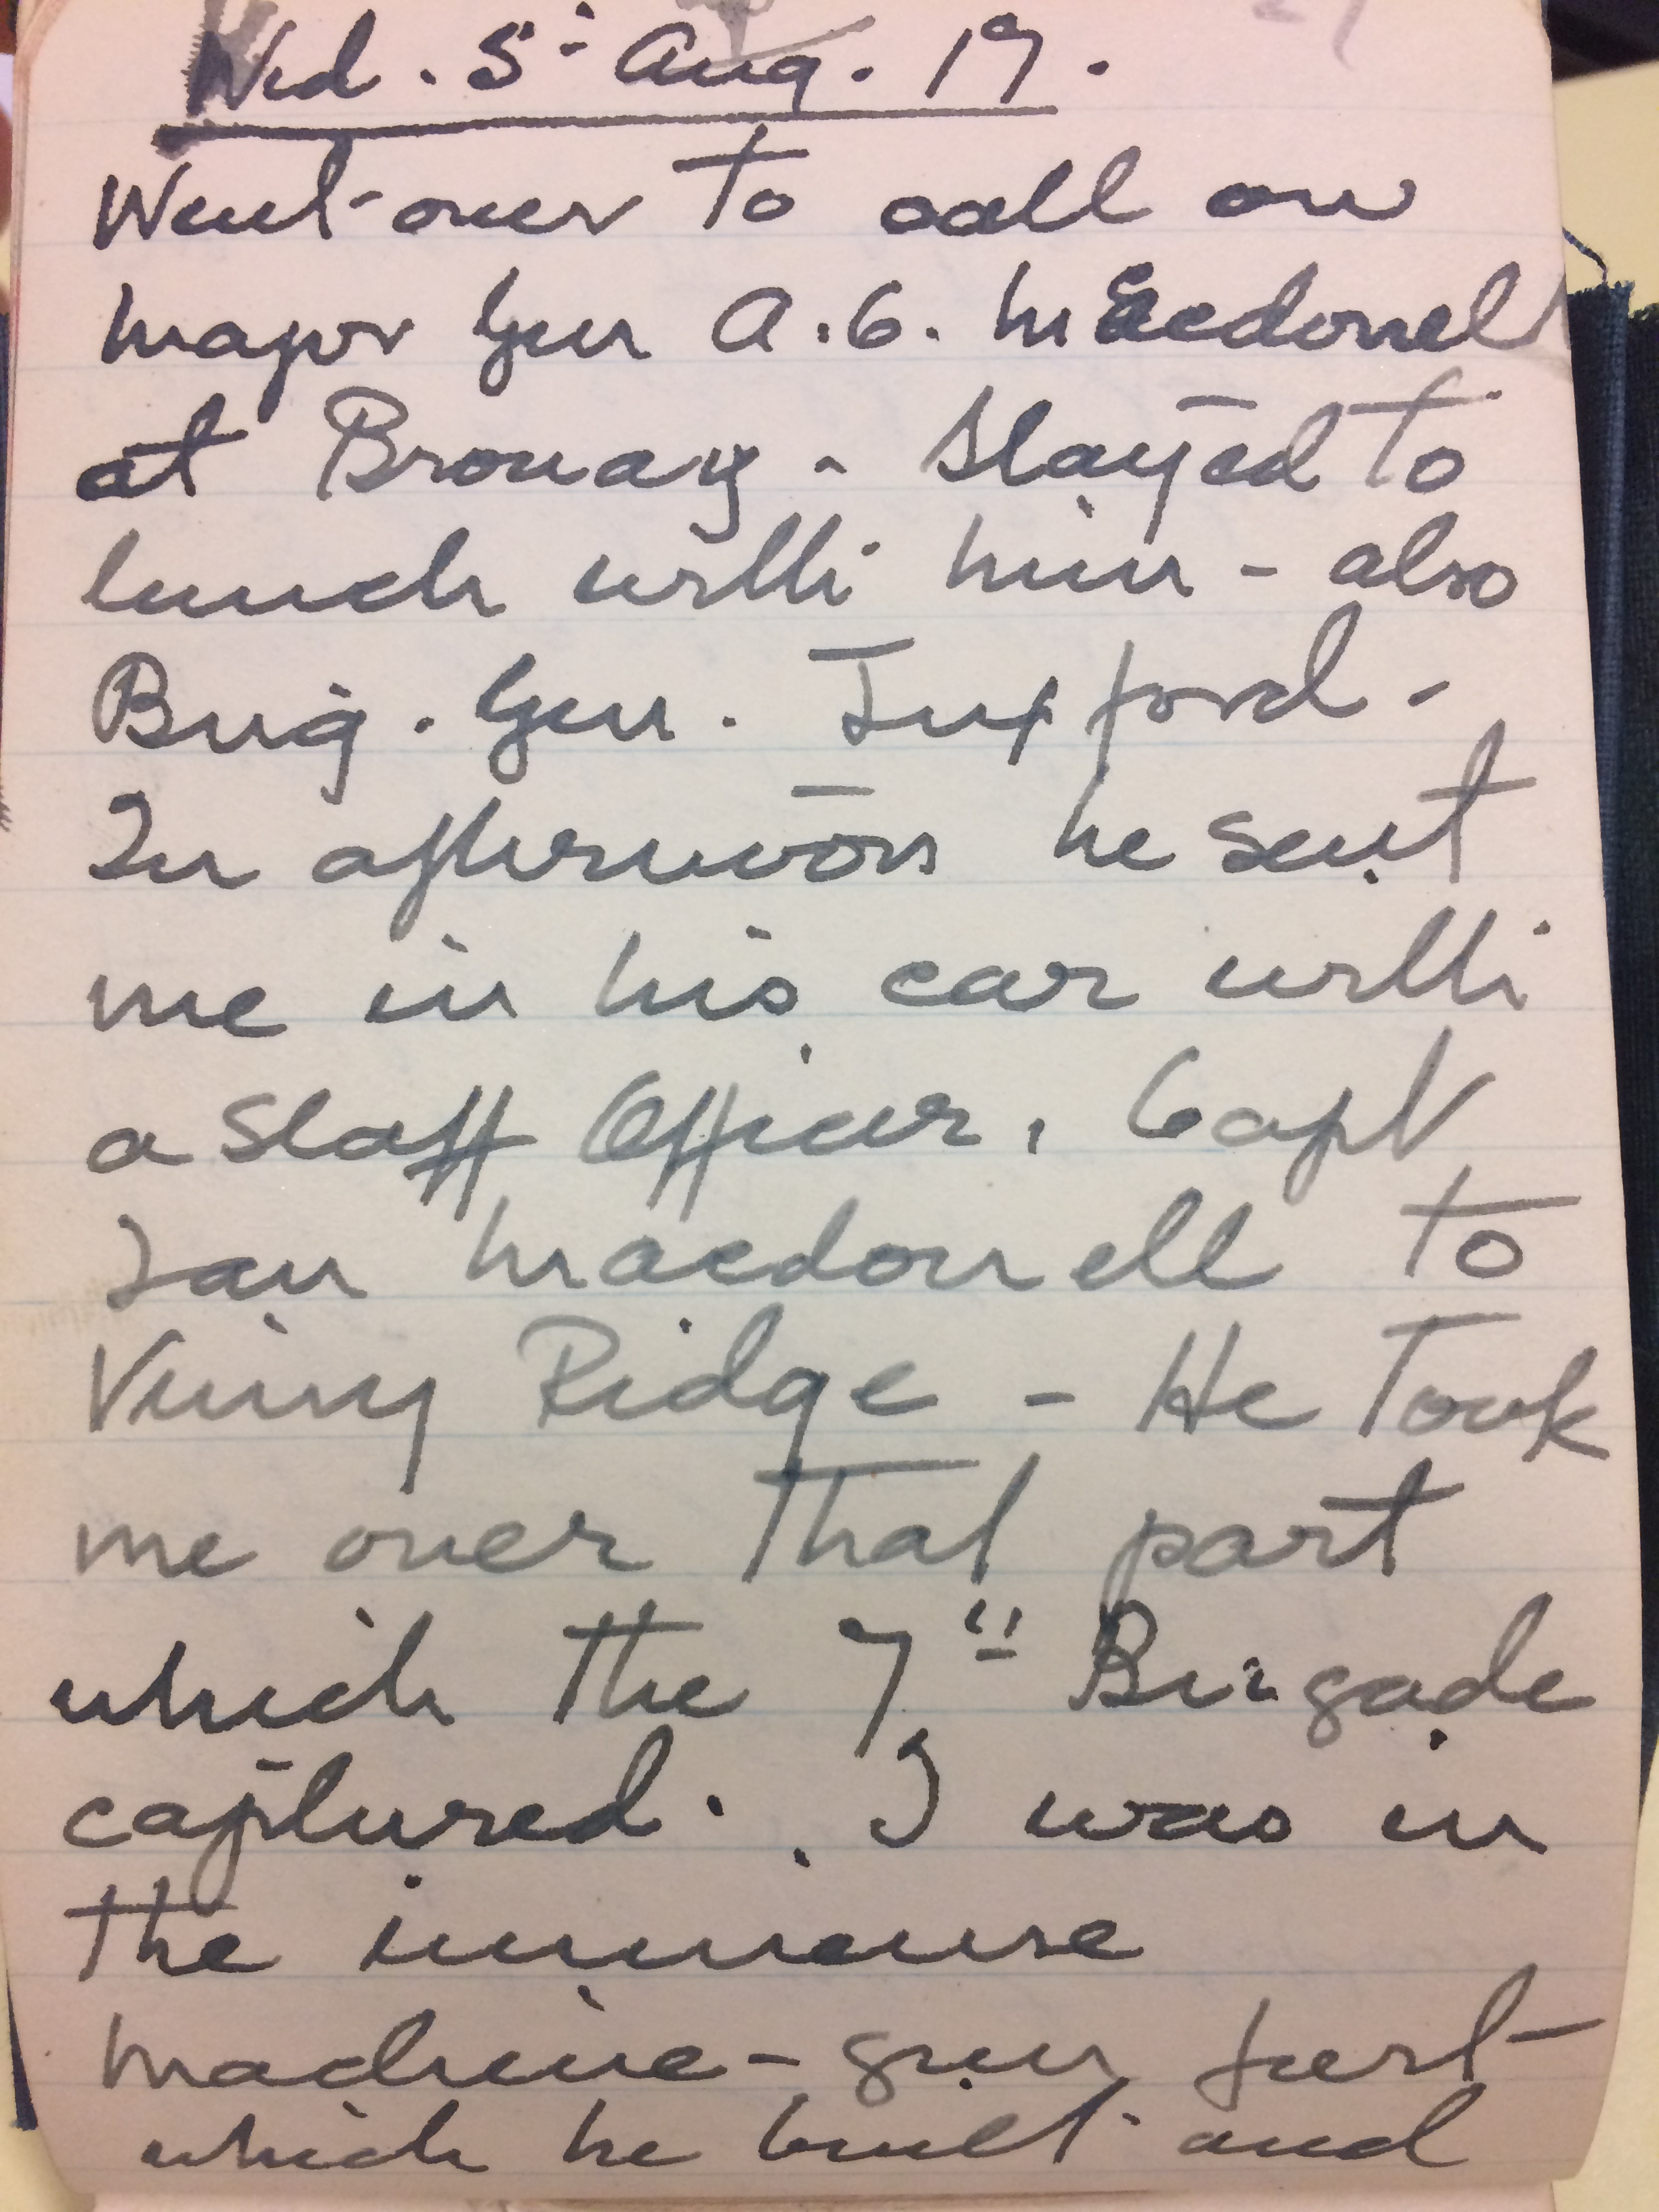 Wed. 5- Aug. 17.
Went over to call on
Major Gen A.C. Macdonell
at Brouay - Stayed to
lunch with him - also
Brig. Gen. Tuxford -
In afternoon he sent
me in his car with
a Staff Officer, Capt
Ian Macdonell to
Vimy Ridge - He Took
me over that part
which the 7th Brigade
captured. I was in
the immense
machine-gun fort
which he built and